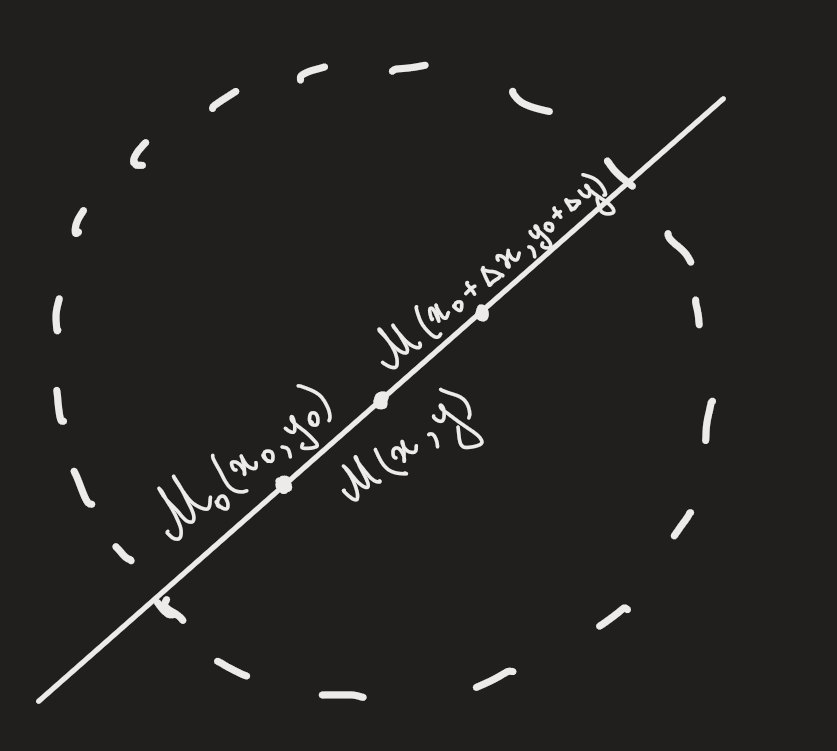 M(x₀+Δx, y₀+Δy)
M₀(x₀, y₀)
M(x, y)